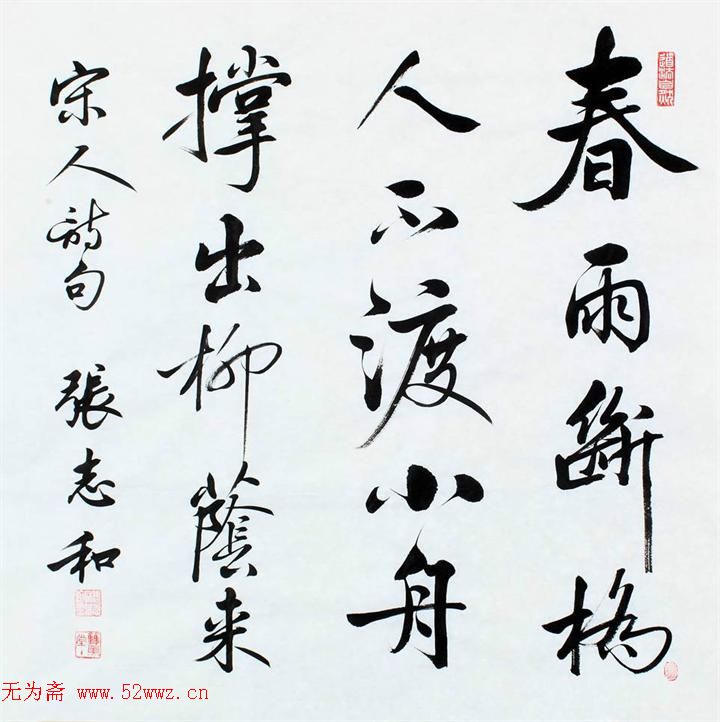 春雨斷橋
人不渡小舟
撑出柳蔭来
宋人詩句 張志和
无为斋 www.52wwz.cn